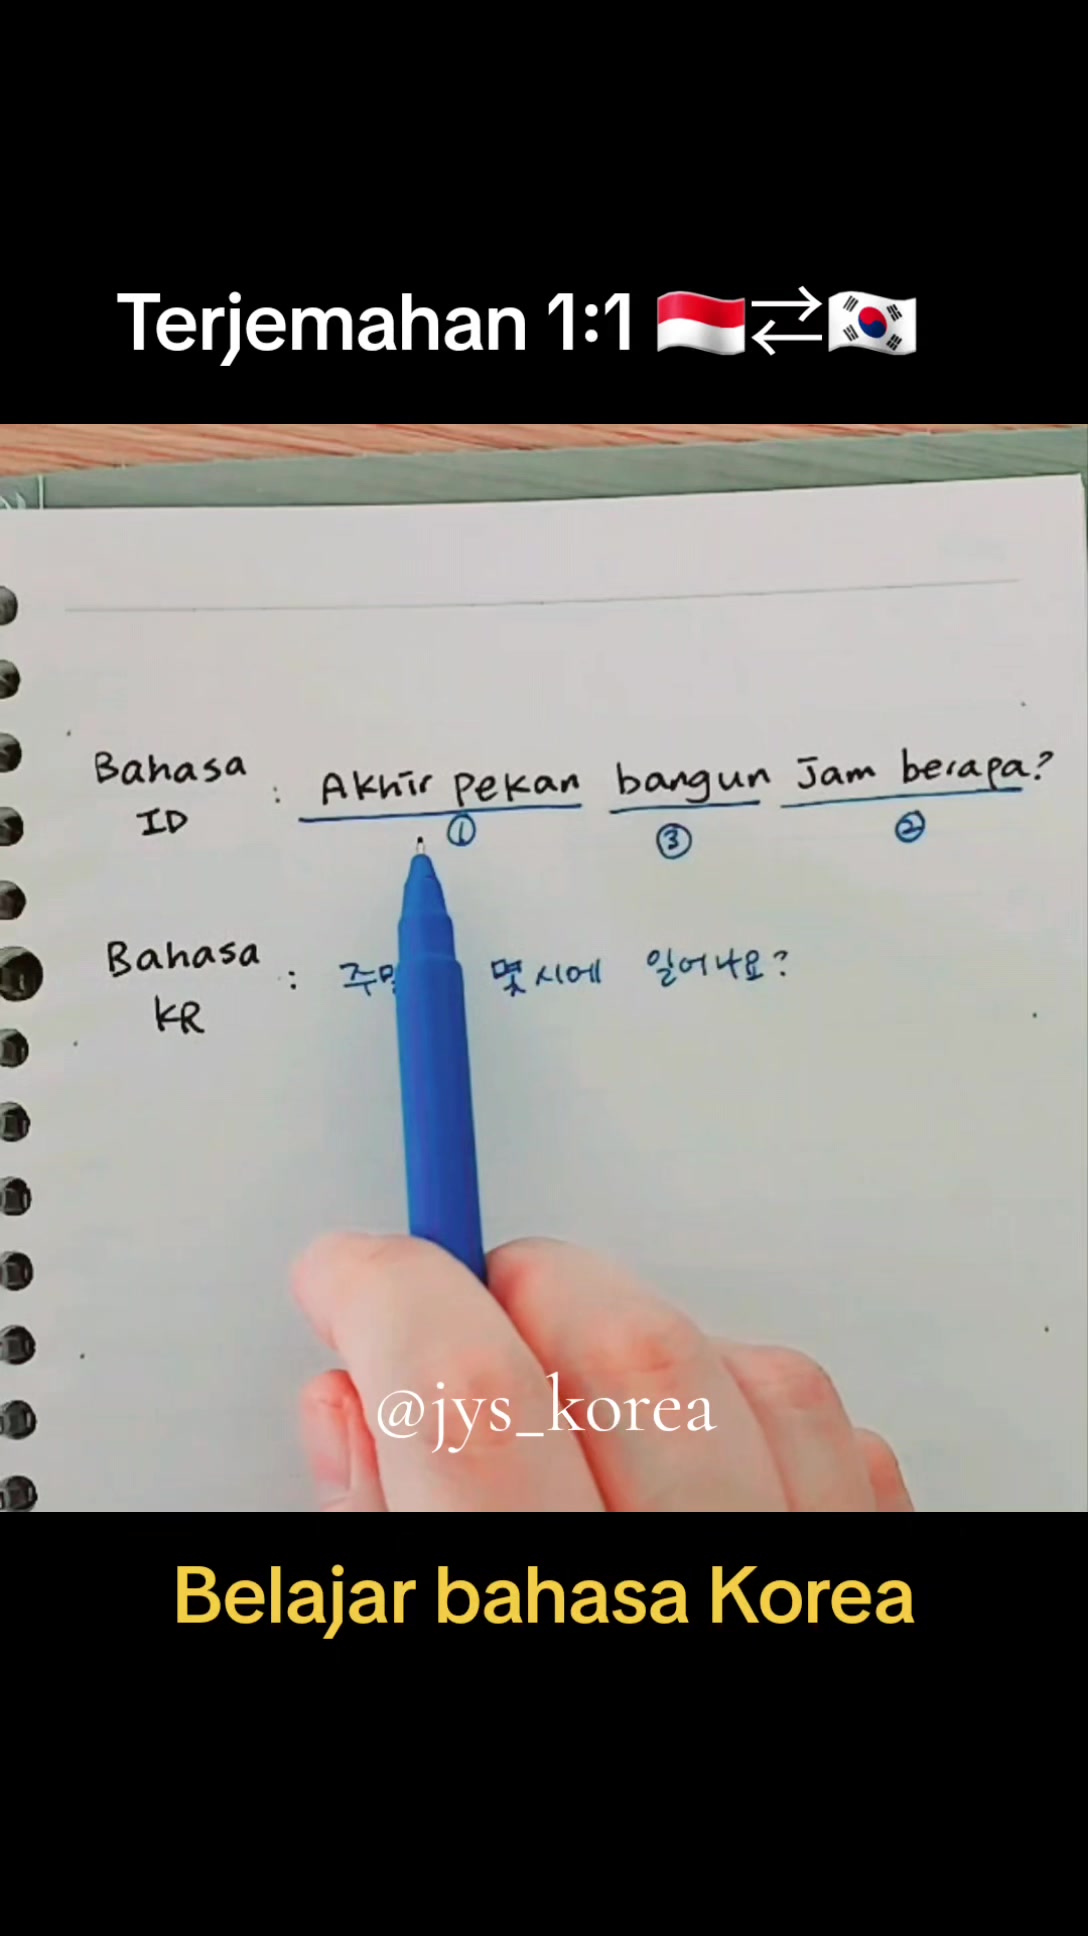 Terjemahan 1:1 🇮🇩⇄🇰🇷
Bahasa ID : Akhir pekan bangun jam berapa?
① ③ ②
Bahasa KR : 몇시에 일어나요?
@jys_korea
Belajar bahasa Korea